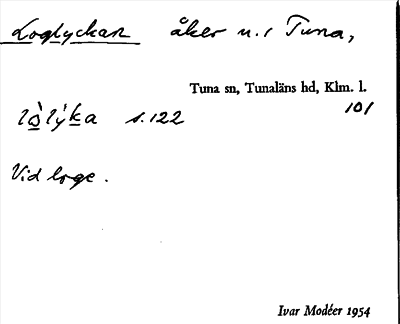 Loglyckan åker n. i Tuna,
Tuna sn, Tunaläns hd, Klm. l.
101
lò̱lýḵa s. 122
Vid loge.
Ivar Modéer 1954